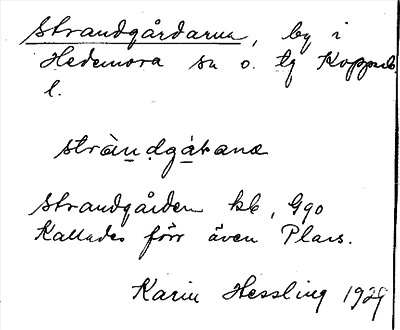 Strandgårdarna, by i
Hedemora sn o. tg Kopparb.
l.
stràndgárana
Strandgården kb, Ggo
Kallades förr även Plars.
Karin Hessling 1929